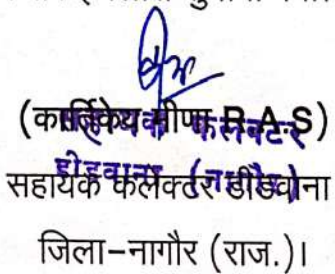 (कार्तिकेय मीणा R.A.S)
सहायक कलेक्टर
डीडवाना (नागौर)
सहायक कलेक्टर डीडवाना
जिला-नागौर (राज.)।